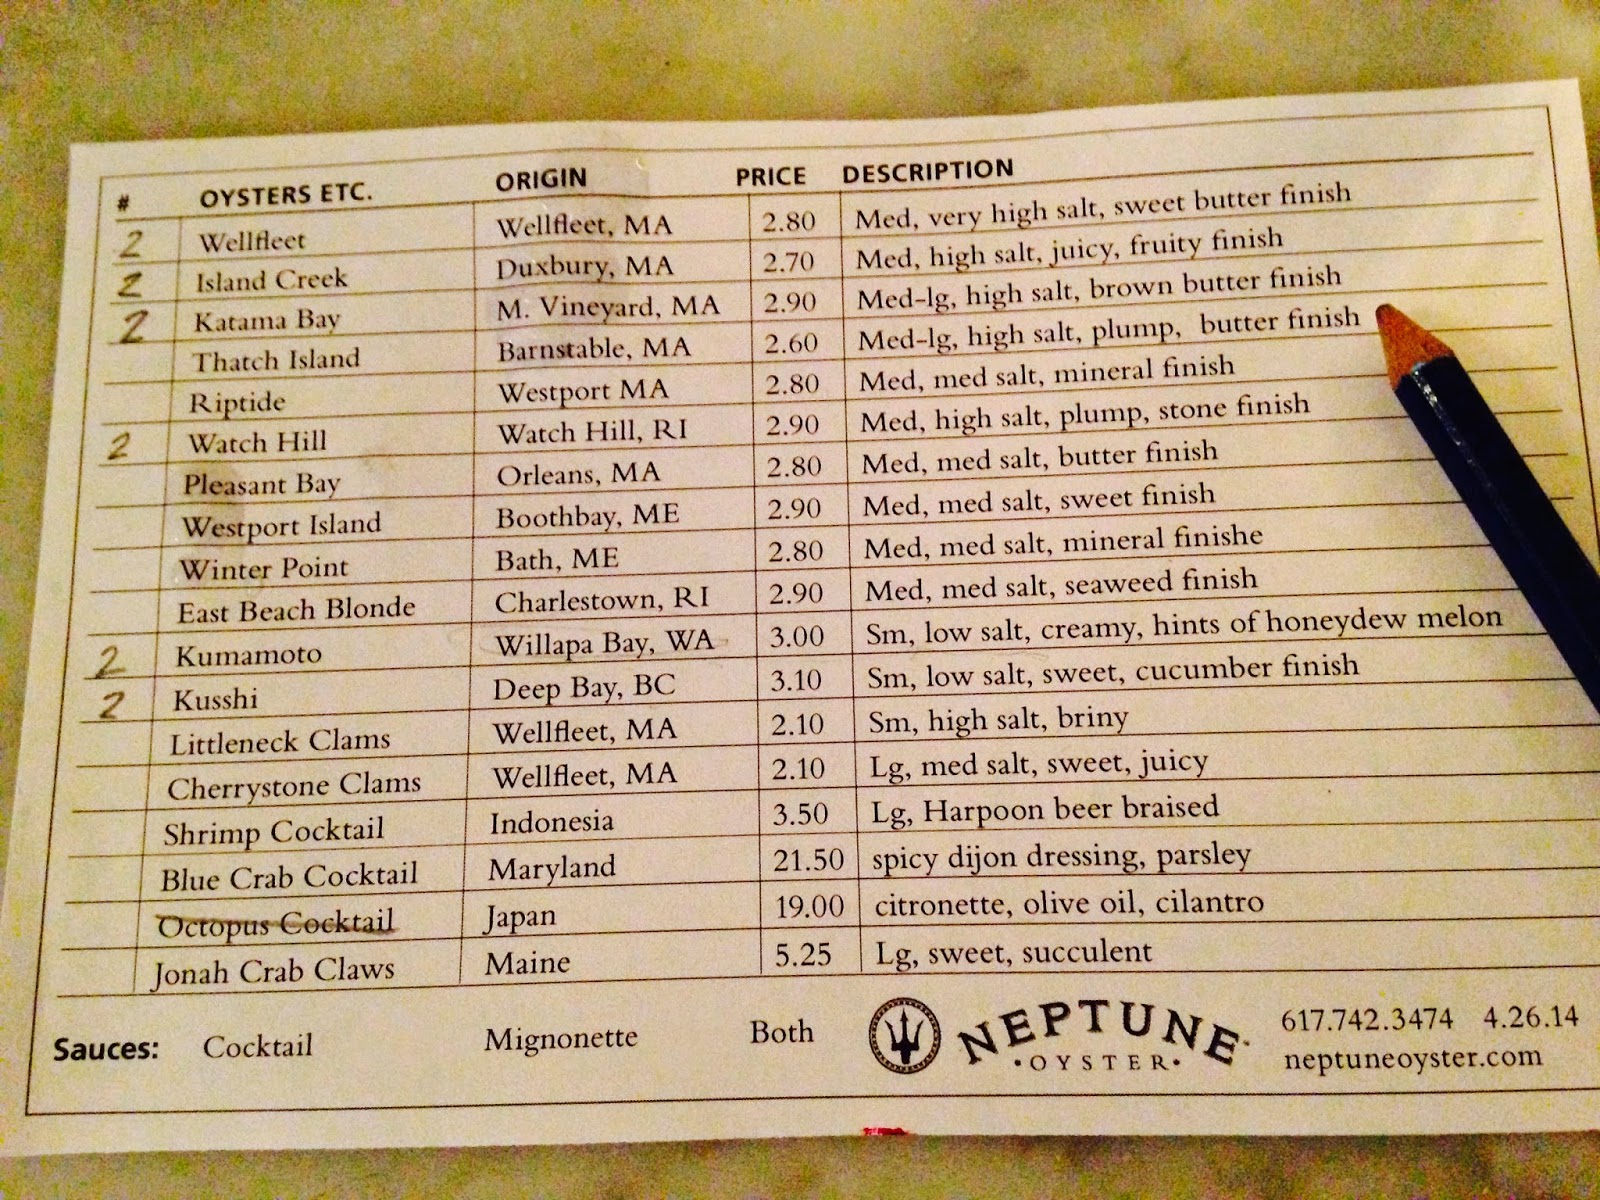 # OYSTERS ETC. ORIGIN PRICE DESCRIPTION
2 Wellfleet Wellfleet, MA 2.80 Med, very high salt, sweet butter finish
2 Island Creek Duxbury, MA 2.70 Med, high salt, juicy, fruity finish
2 Katama Bay M. Vineyard, MA 2.90 Med-lg, high salt, brown butter finish
Thatch Island Barnstable, MA 2.60 Med-lg, high salt, plump, butter finish
Riptide Westport MA 2.80 Med, med salt, mineral finish
2 Watch Hill Watch Hill, RI 2.90 Med, high salt, plump, stone finish
Pleasant Bay Orleans, MA 2.80 Med, med salt, butter finish
Westport Island Boothbay, ME 2.90 Med, med salt, sweet finish
Winter Point Bath, ME 2.80 Med, med salt, mineral finishe
East Beach Blonde Charlestown, RI 2.90 Med, med salt, seaweed finish
2 Kumamoto Willapa Bay, WA 3.00 Sm, low salt, creamy, hints of honeydew melon
2 Kusshi Deep Bay, BC 3.10 Sm, low salt, sweet, cucumber finish
Littleneck Clams Wellfleet, MA 2.10 Sm, high salt, briny
Cherrystone Clams Wellfleet, MA 2.10 Lg, med salt, sweet, juicy
Shrimp Cocktail Indonesia 3.50 Lg, Harpoon beer braised
Blue Crab Cocktail Maryland 21.50 spicy dijon dressing, parsley
Octopus Cocktail Japan 19.00 citronette, olive oil, cilantro
Jonah Crab Claws Maine 5.25 Lg, sweet, succulent
Sauces: Cocktail Mignonette Both
NEPTUNE
·OYSTER·
617.742.3474 4.26.14
neptuneoyster.com